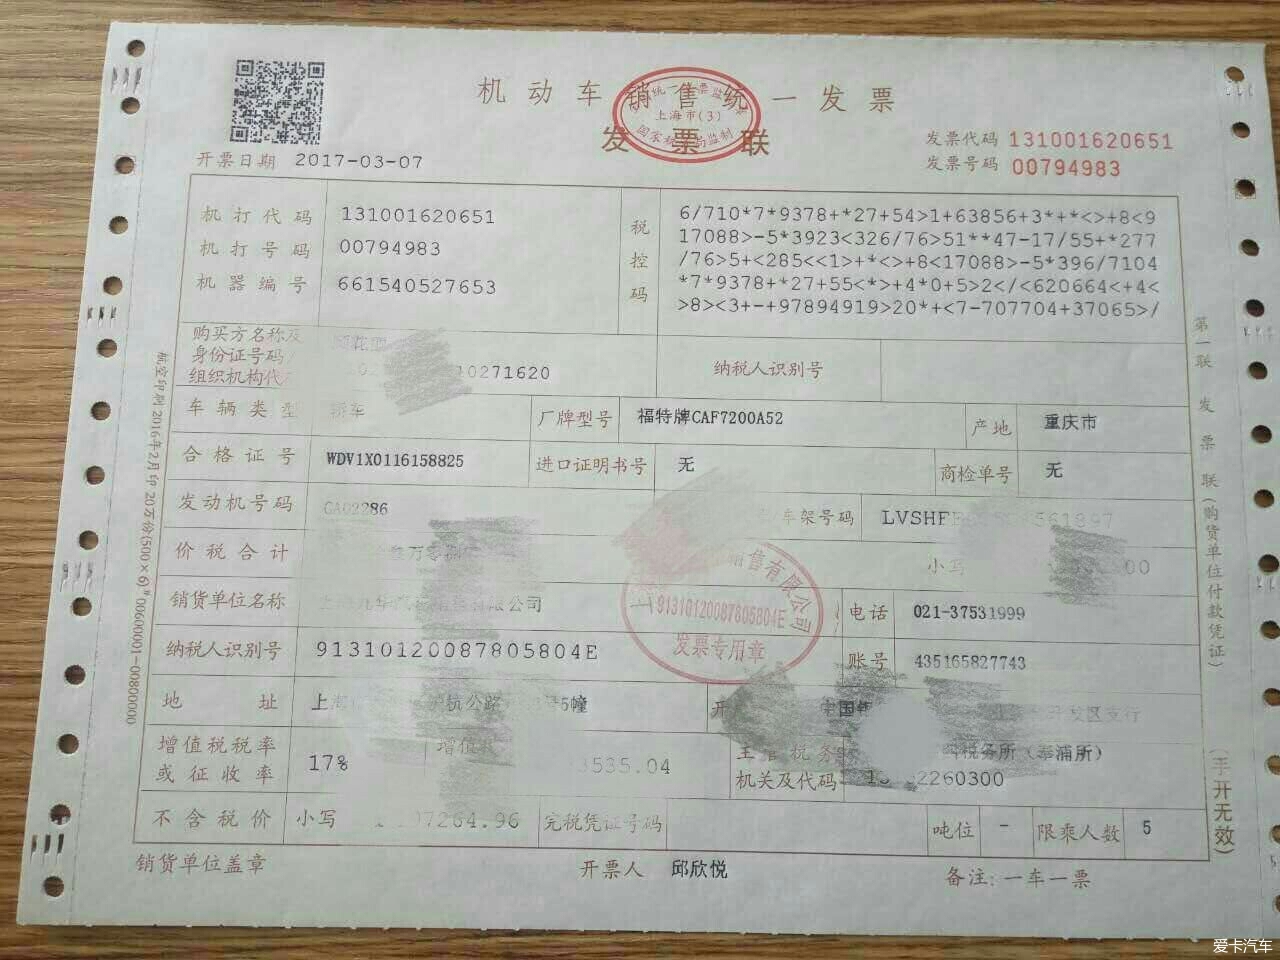 机动车销售统一发票
发票联
上海市(3)
开票日期 2017-03-07
发票代码 131001620651
发票号码 00794983
机打代码 131001620651
机打号码 00794983
机器编号 661540527653
税控码
6/710*7*9378+*27+54>1+63856+3*+*<>+8<9
17088>-5*3923<326/76>51**47-17/55+*277
/76>5+<285<<1>+*<>+8<17088>-5*396/7104
*7*9378+*27+55<*>+4*0+5>2</<620664<+4<
>8><3+-+97894919>20*+<7-707704+37065>/
购买方名称及
身份证号码/
组织机构代
10271620
纳税人识别号
车辆类型 轿车
厂牌型号 福特牌CAF7200A52
产地 重庆市
合格证号 WDV1X0116158825
进口证明书号 无
商检单号 无
发动机号码 GA02286
车架号码 LVSHF 561897
价税合计
小写 00
销货单位名称 有限公司
电话 021-37531999
纳税人识别号 91310120087805804E
账号 435165827743
销售有限公司
91310120087805804E
发票专用章
地址 上 杭公路 号5幢
开 中国 开发区支行
增值税税率
或征收率
17%
增值 3535.04
主管税务
机关及代码
税务所(奉浦所)
2260300
不含税价 小写 07264.96
完税凭证号码
吨位 -
限乘人数 5
销货单位盖章
开票人 邱欣悦
备注:一车一票
第一联 发票联(购货单位付款凭证)
(手开无效)
航空印刷2016年2月印20万份(500×6)#00600001-00800000
爱卡汽车